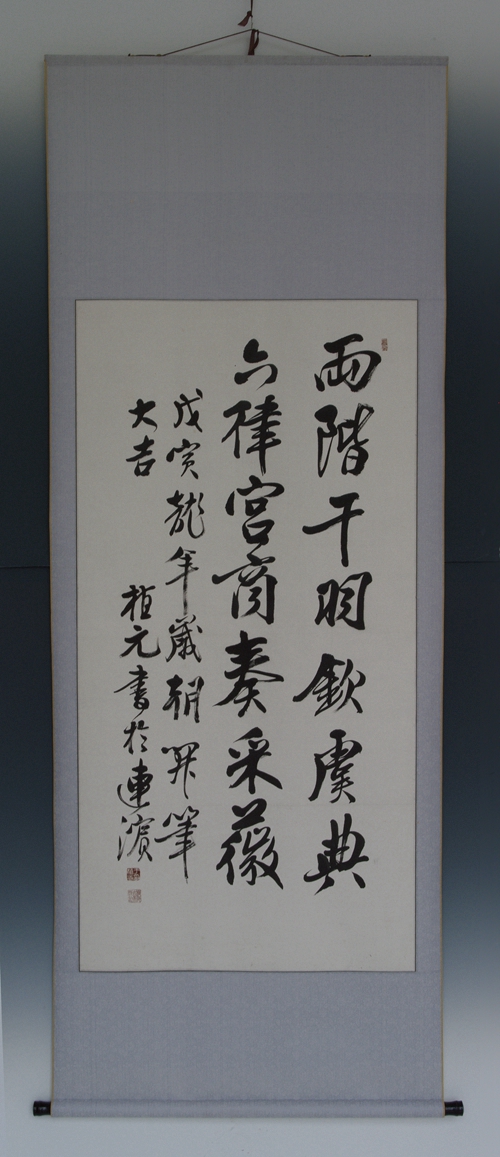 兩階干羽欽虞典
六律宮商奏采薇
戊寅龍年歲朝開筆
大吉 植元書於連濱